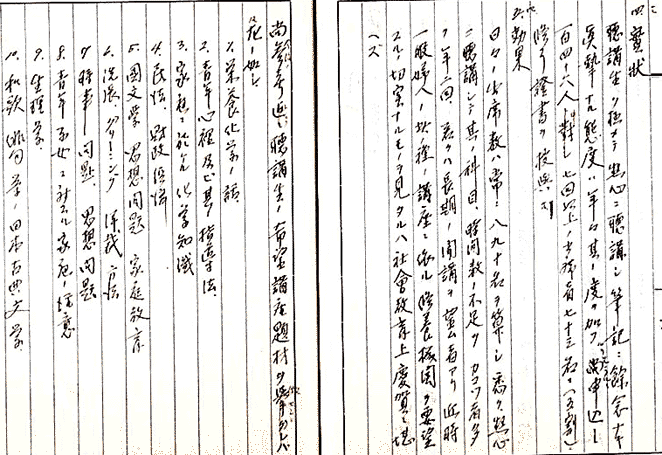 四、實狀
聽講生ハ極メテ熱心ニ聽講シ筆記ニ餘念ナキ
眞摯ナル態度ハ年々其ノ度ヲ加フ 申込
一百四十八人ニ對シ七回以上ノ出席者七十三名ニ(五割)
證書ヲ授與ス
五、効果
日々ノ出席數ハ常ニ八九十名ヲ算シ悉ク熱心
ニ聽講シ其ノ科目、時間數ノ不足ヲカコツ者多
ク年二回、若クハ長期ノ開講ヲ望ム者アリ近時
一般婦人ノ此種ノ講座ニ依ル修養機関ヲ要望
スルノ切実ナルモノヲ見タルハ社會教育上慶賀ニ堪
ヘズ
尚参考迄ニ聽講生ノ希望講座題材ヲ挙グレバ
左ノ如シ
1. 栄養化学ノ話
2. 青年心理及ビ其ノ指導法
3. 家庭ニ於ケル化学知識
4. 民法、財政経済
5. 國文学 思想問題 家庭教育
6. 洗濯、クリーニング 洋裁ノ方法
7. 時事ノ問題、思想問題
8. 青年子女ニ対スル家庭ノ注意
9. 生理学
10. 和歌 俳句等ノ日本古典文学